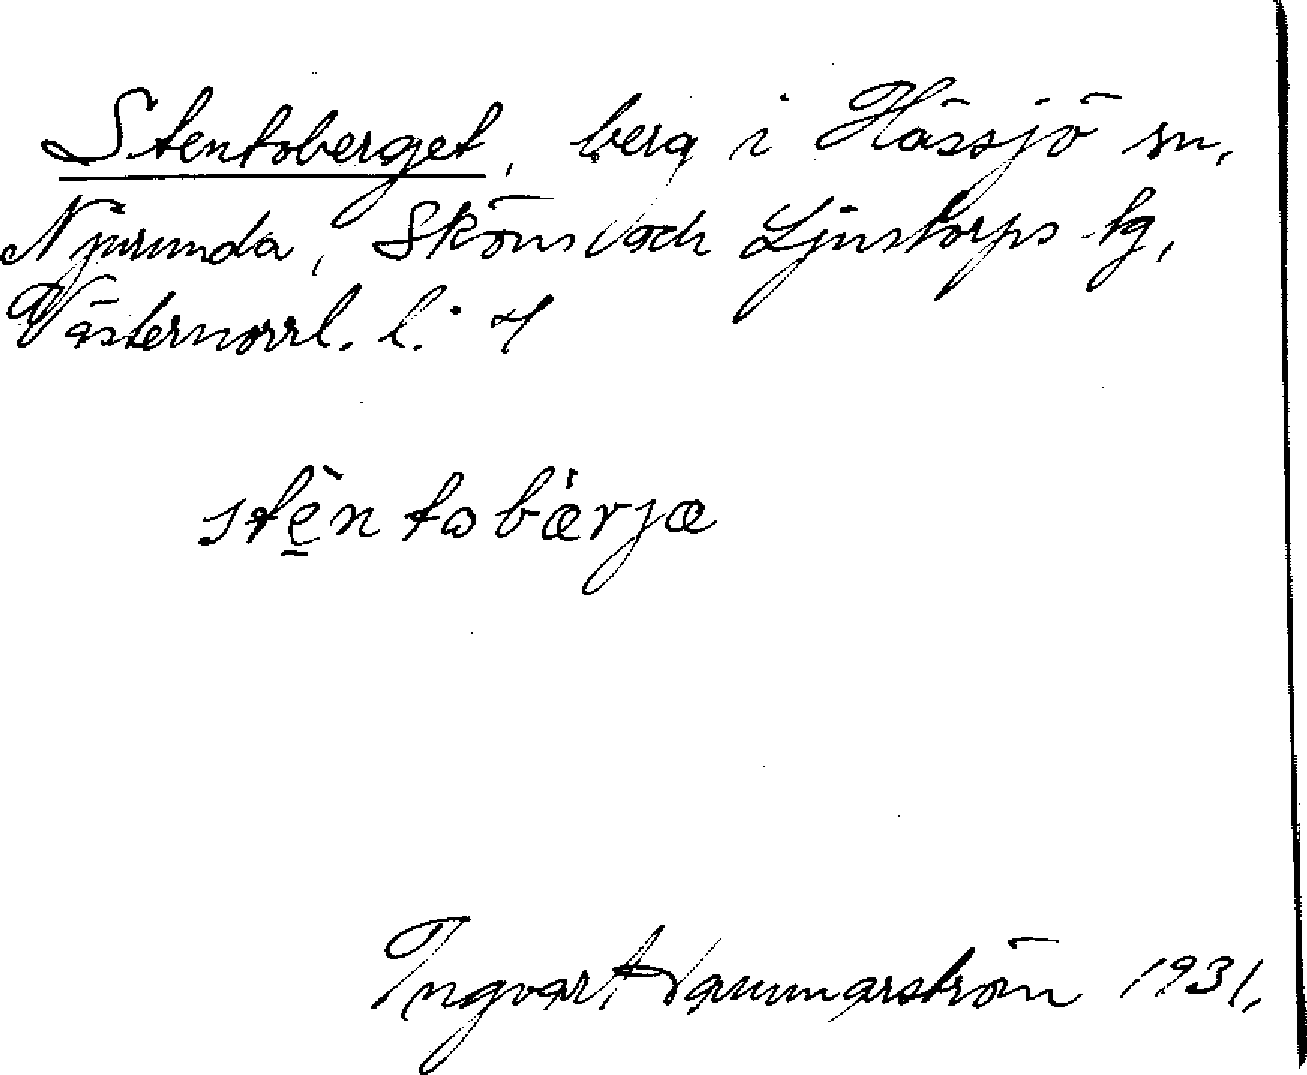 Stentoberget, berg i Hässjö sn,
Njurunda, Sköns och Ljustorps tg,
Västernorrl. l.
stè̱ntobǽrjæ
Ingvar Hammarström 1931.